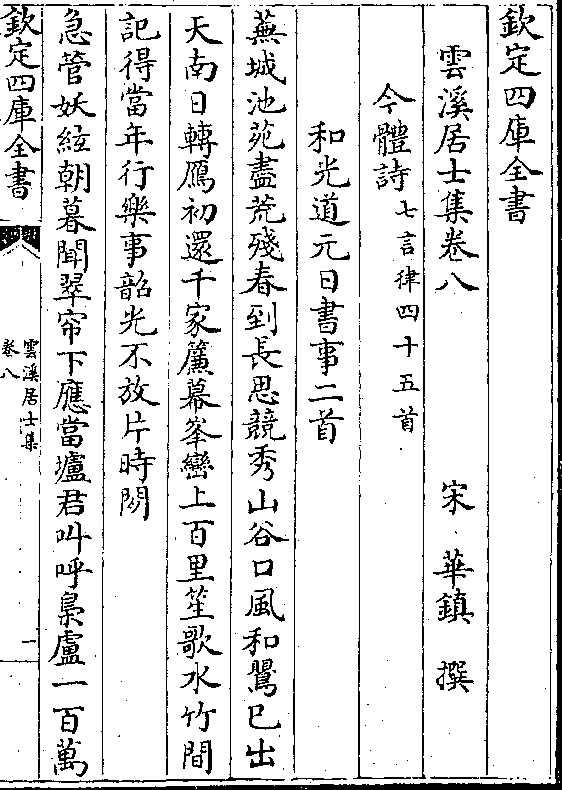 欽定四庫全書
雲溪居士集卷八
宋 華鎮 撰
今體詩七言律四十五首
和光道元日書事二首
蕪城池苑盡荒殘春到長思競秀山谷口風和鸎已出
天南日轉鴈初還千家簾幕峯巒上百里笙歌水竹間
記得當年行樂事韶光不放片時閑
急管妖絃朝暮聞翠帘下應當壚君叫呼梟盧一百萬
欽定四庫全書
雲溪居士集
卷八
一